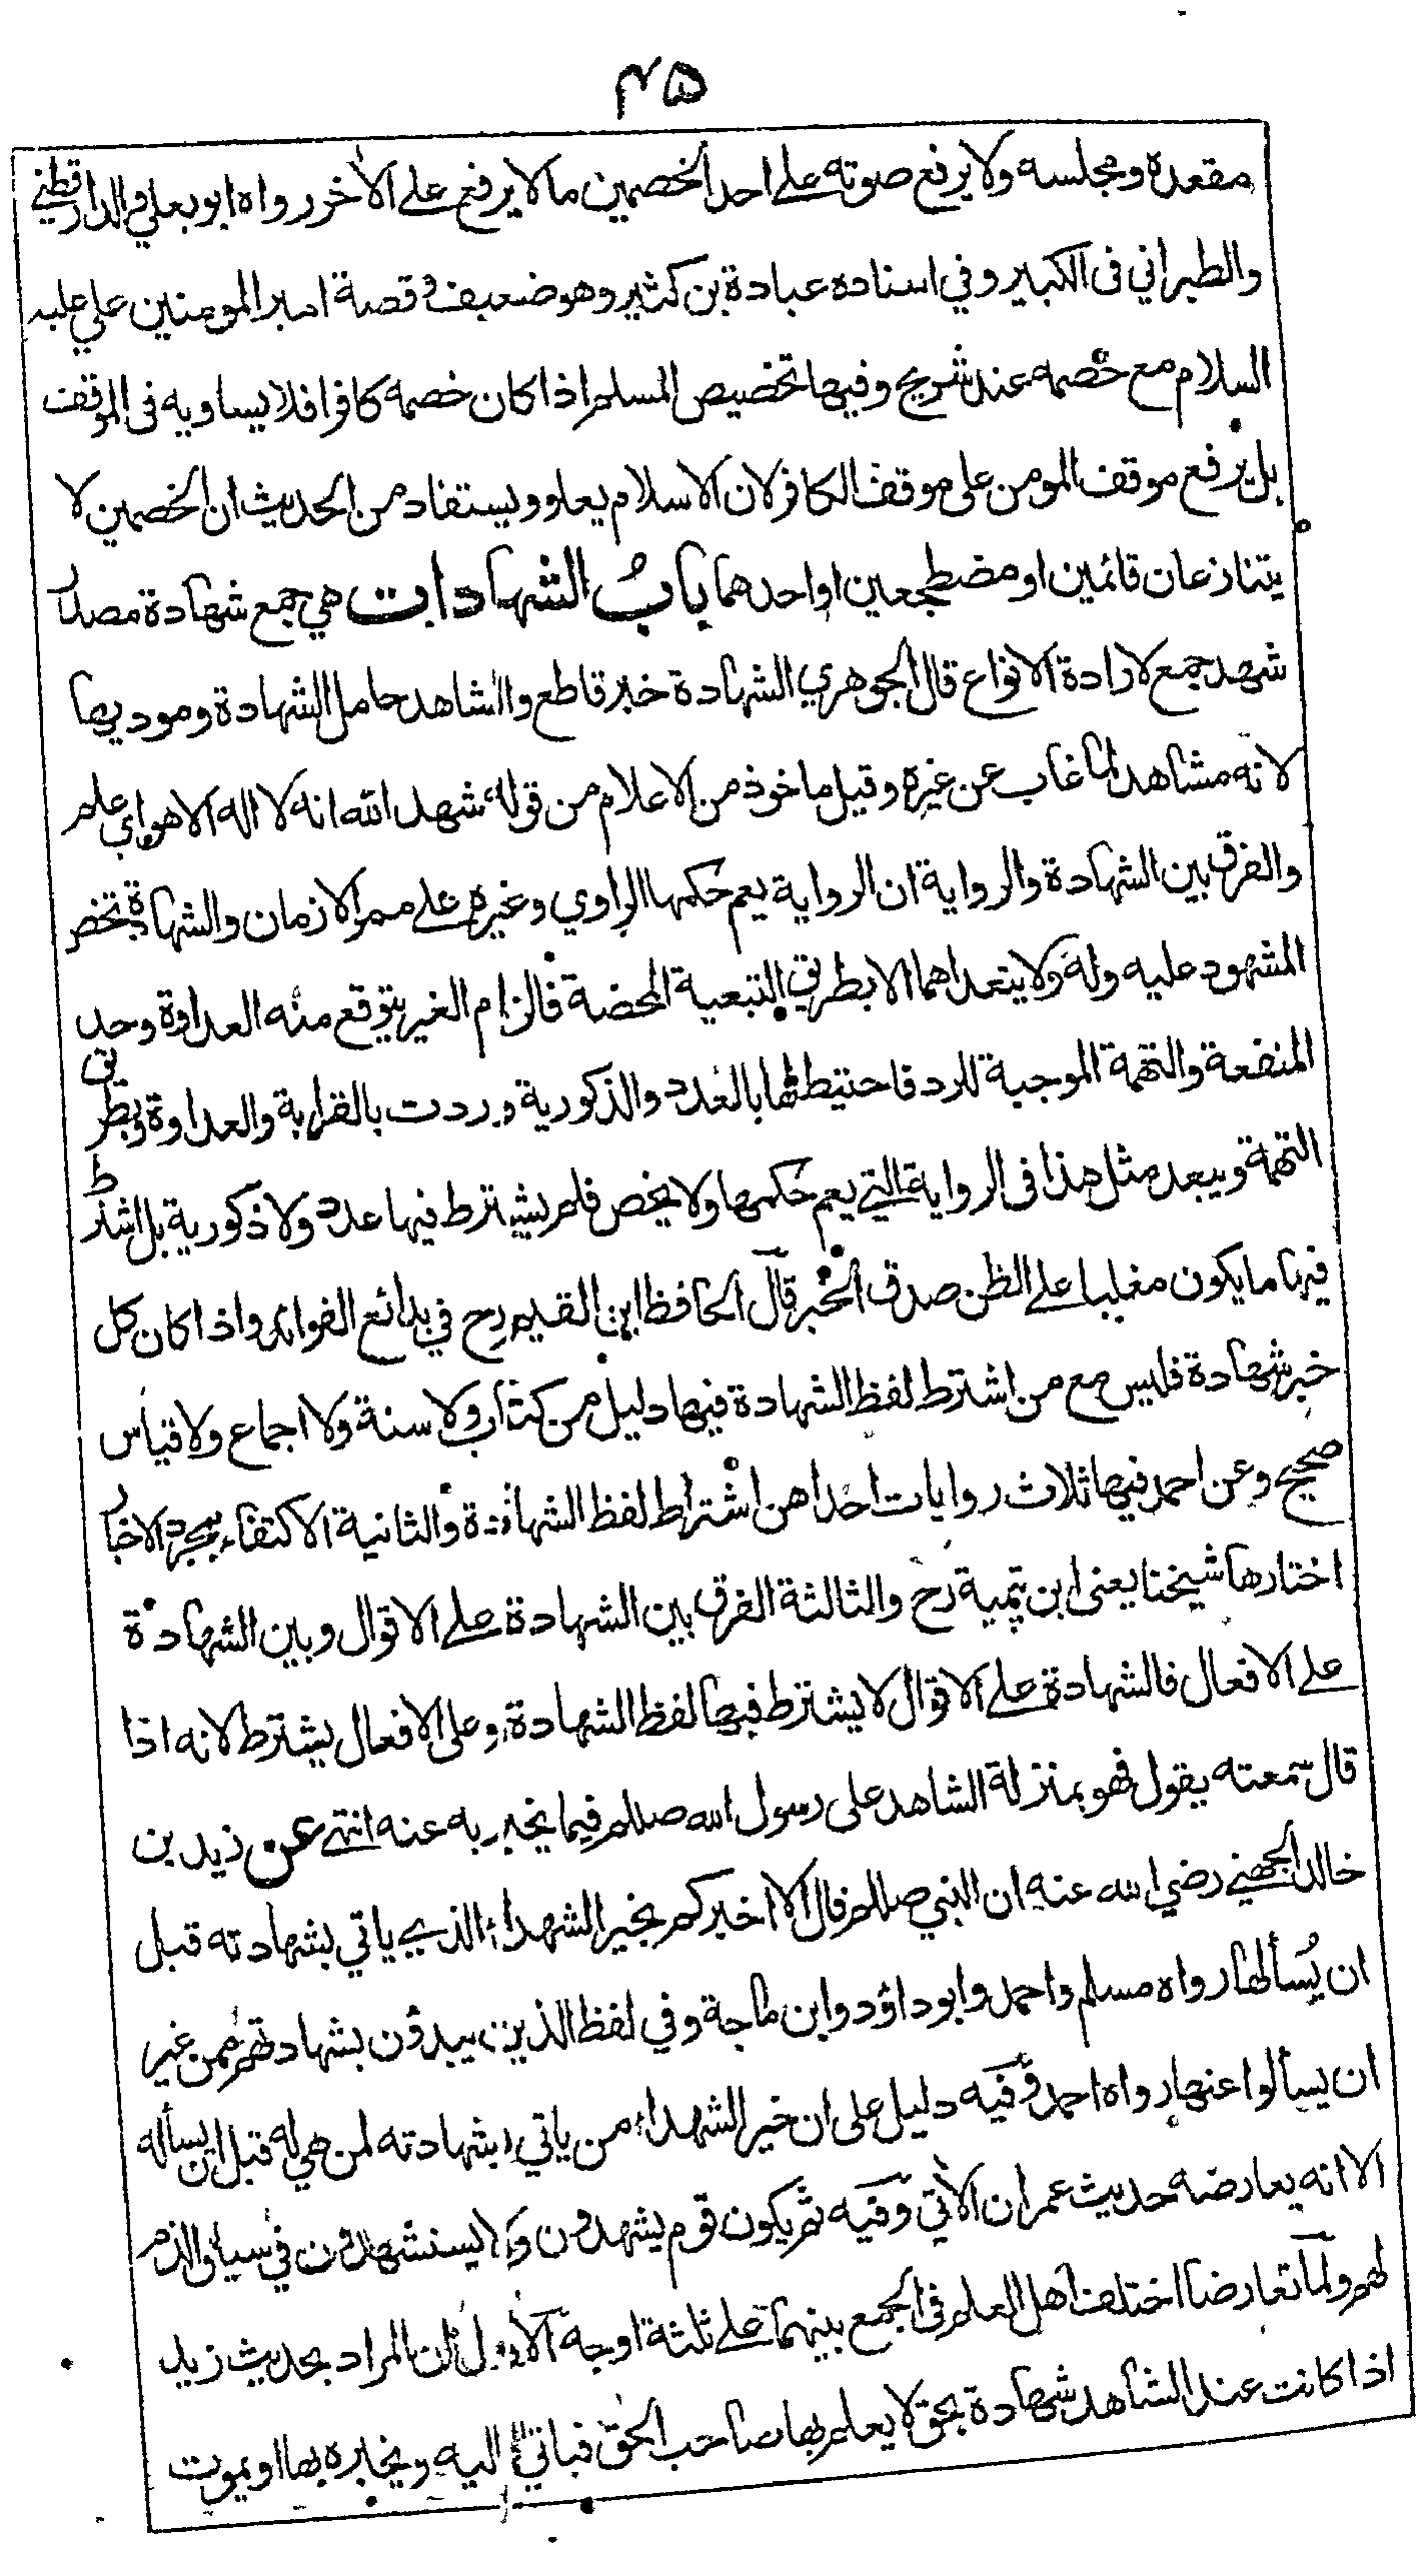 ۴۵
مقعده ومجلسه ولا يرفع صوته على احد الخصمين ما لا يرفع على الآخر رواه ابو يعلي والدارقطني
والطبراني في الكبير وفي اسناده عبادة بن كثير وهو ضعيف وقصة امير المومنين علي عليه
السلام مع خصمه عند شريح وفيها تخصيص المسلم اذا كان خصمه كافرا فلا يساويه في الموقف
بل يرفع موقف المومن على موقف الكافر لان الاسلام يعلو ويستفاد من الحديث ان الخصمين لا
يتنازعان قائمين او مضطجعين او احدهما بابُ الشهادات هي جمع شهادة مصدر
شهد جمع لارادة الانواع قال الجوهري الشهادة خبر قاطع والشاهد حامل الشهادة وموديها
لانه مشاهد لما غاب عن غيره وقيل ماخوذ من الاعلام من قوله شهد الله انه لا اله الا هو اي علم
والفرق بين الشهادة والرواية ان الرواية يعم حكمها الراوي وغيره على ممر الازمان والشهادة تخص
المشهود عليه وله ولا يتعداهما الا بطريق التبعية المحضة فالزام الغير يتوقع منه العداوة وحد
المنفعة والتهمة الموجبة للرد فاحتيط لها بالعدد والذكورية وردت بالقرابة والعداوة وتطرق
التهمة ويبعد مثل هذا في الرواية التي يعم حكمها ولا يخص فلم يشترط فيها عدد ولا ذكورية بل اشترط
فيها ما يكون مغلبا على الظن صدق الخبر قال الحافظ ابن القيم رح في بدائع الفوائد واذا كان كل
خبر شهادة فليس مع من اشترط لفظ الشهادة فيها دليل من كتاب ولا سنة ولا اجماع ولا قياس
صحيح وعن احمد فيها ثلاث روايات احداهن اشتراط لفظ الشهادة والثانية الاكتفاء بمجرد الاخبار
اختارها شيخنا يعني ابن تيمية رح والثالثة الفرق بين الشهادة على الاقوال وبين الشهادة
على الافعال فالشهادة على الاقوال لا يشترط فيها لفظ الشهادة وعلى الافعال يشترط لانه اذا
قال سمعته يقول فهو بمنزلة الشاهد على رسول الله صللم فيما يخبر به عنه انتهى عن زيد بن
خالد الجهني رضي الله عنه ان النبي صللم قال الا اخبركم بخير الشهداء الذي ياتي بشهادته قبل
ان يُسألها رواه مسلم واحمد وابو داؤد وابن ماجة وفي لفظ الذين يبدؤن بشهادتهم من غير
ان يسألوا عنها رواه احمد وفيه دليل على ان خير الشهداء من ياتي بشهادته لمن هي له قبل ان يسأله
الا انه يعارضه حديث عمران الآتي وفيه ثم يكون قوم يشهدون ولا يستشهدون في سياق الذم
لهم ولما تعارضا اختلف اهل العلم في الجمع بينهما على ثلثة اوجه الاول ان المراد بحديث زيد
اذا كانت عند الشاهد شهادة بحق لا يعلم بها صاحب الحق فياتي اليه ويخبره بها او يموت